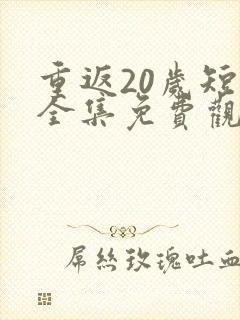 重返20歲短
全集免費觀
屌絲玫瑰吐血